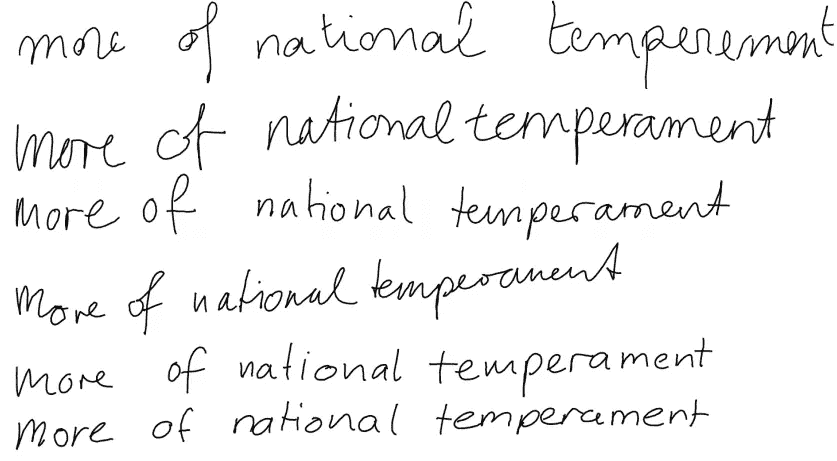 more of national temperement
more of national temperament
more of national temperament
More of national temperament
more of national temperament
more of national temperament